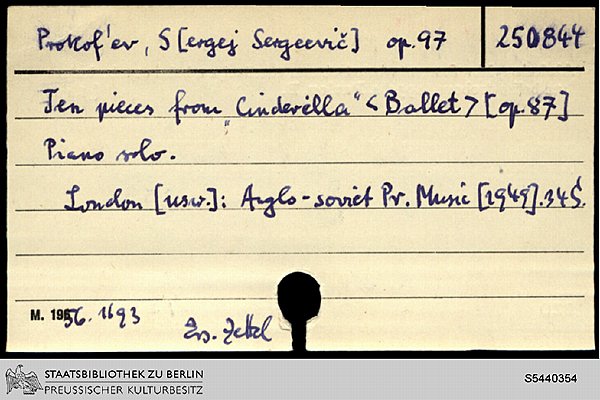 Prokof'ev, S[ergej Sergeevič] op. 97 250844
Ten pieces from „Cinderella" <Ballet> [op. 87]
Piano solo.
London [usw.]: Anglo-soviet Pr. Music [1949]. 34 S.
M. 1956. 1693
Ers. Zettel
STAATSBIBLIOTHEK ZU BERLIN
PREUSSISCHER KULTURBESITZ
S5440354